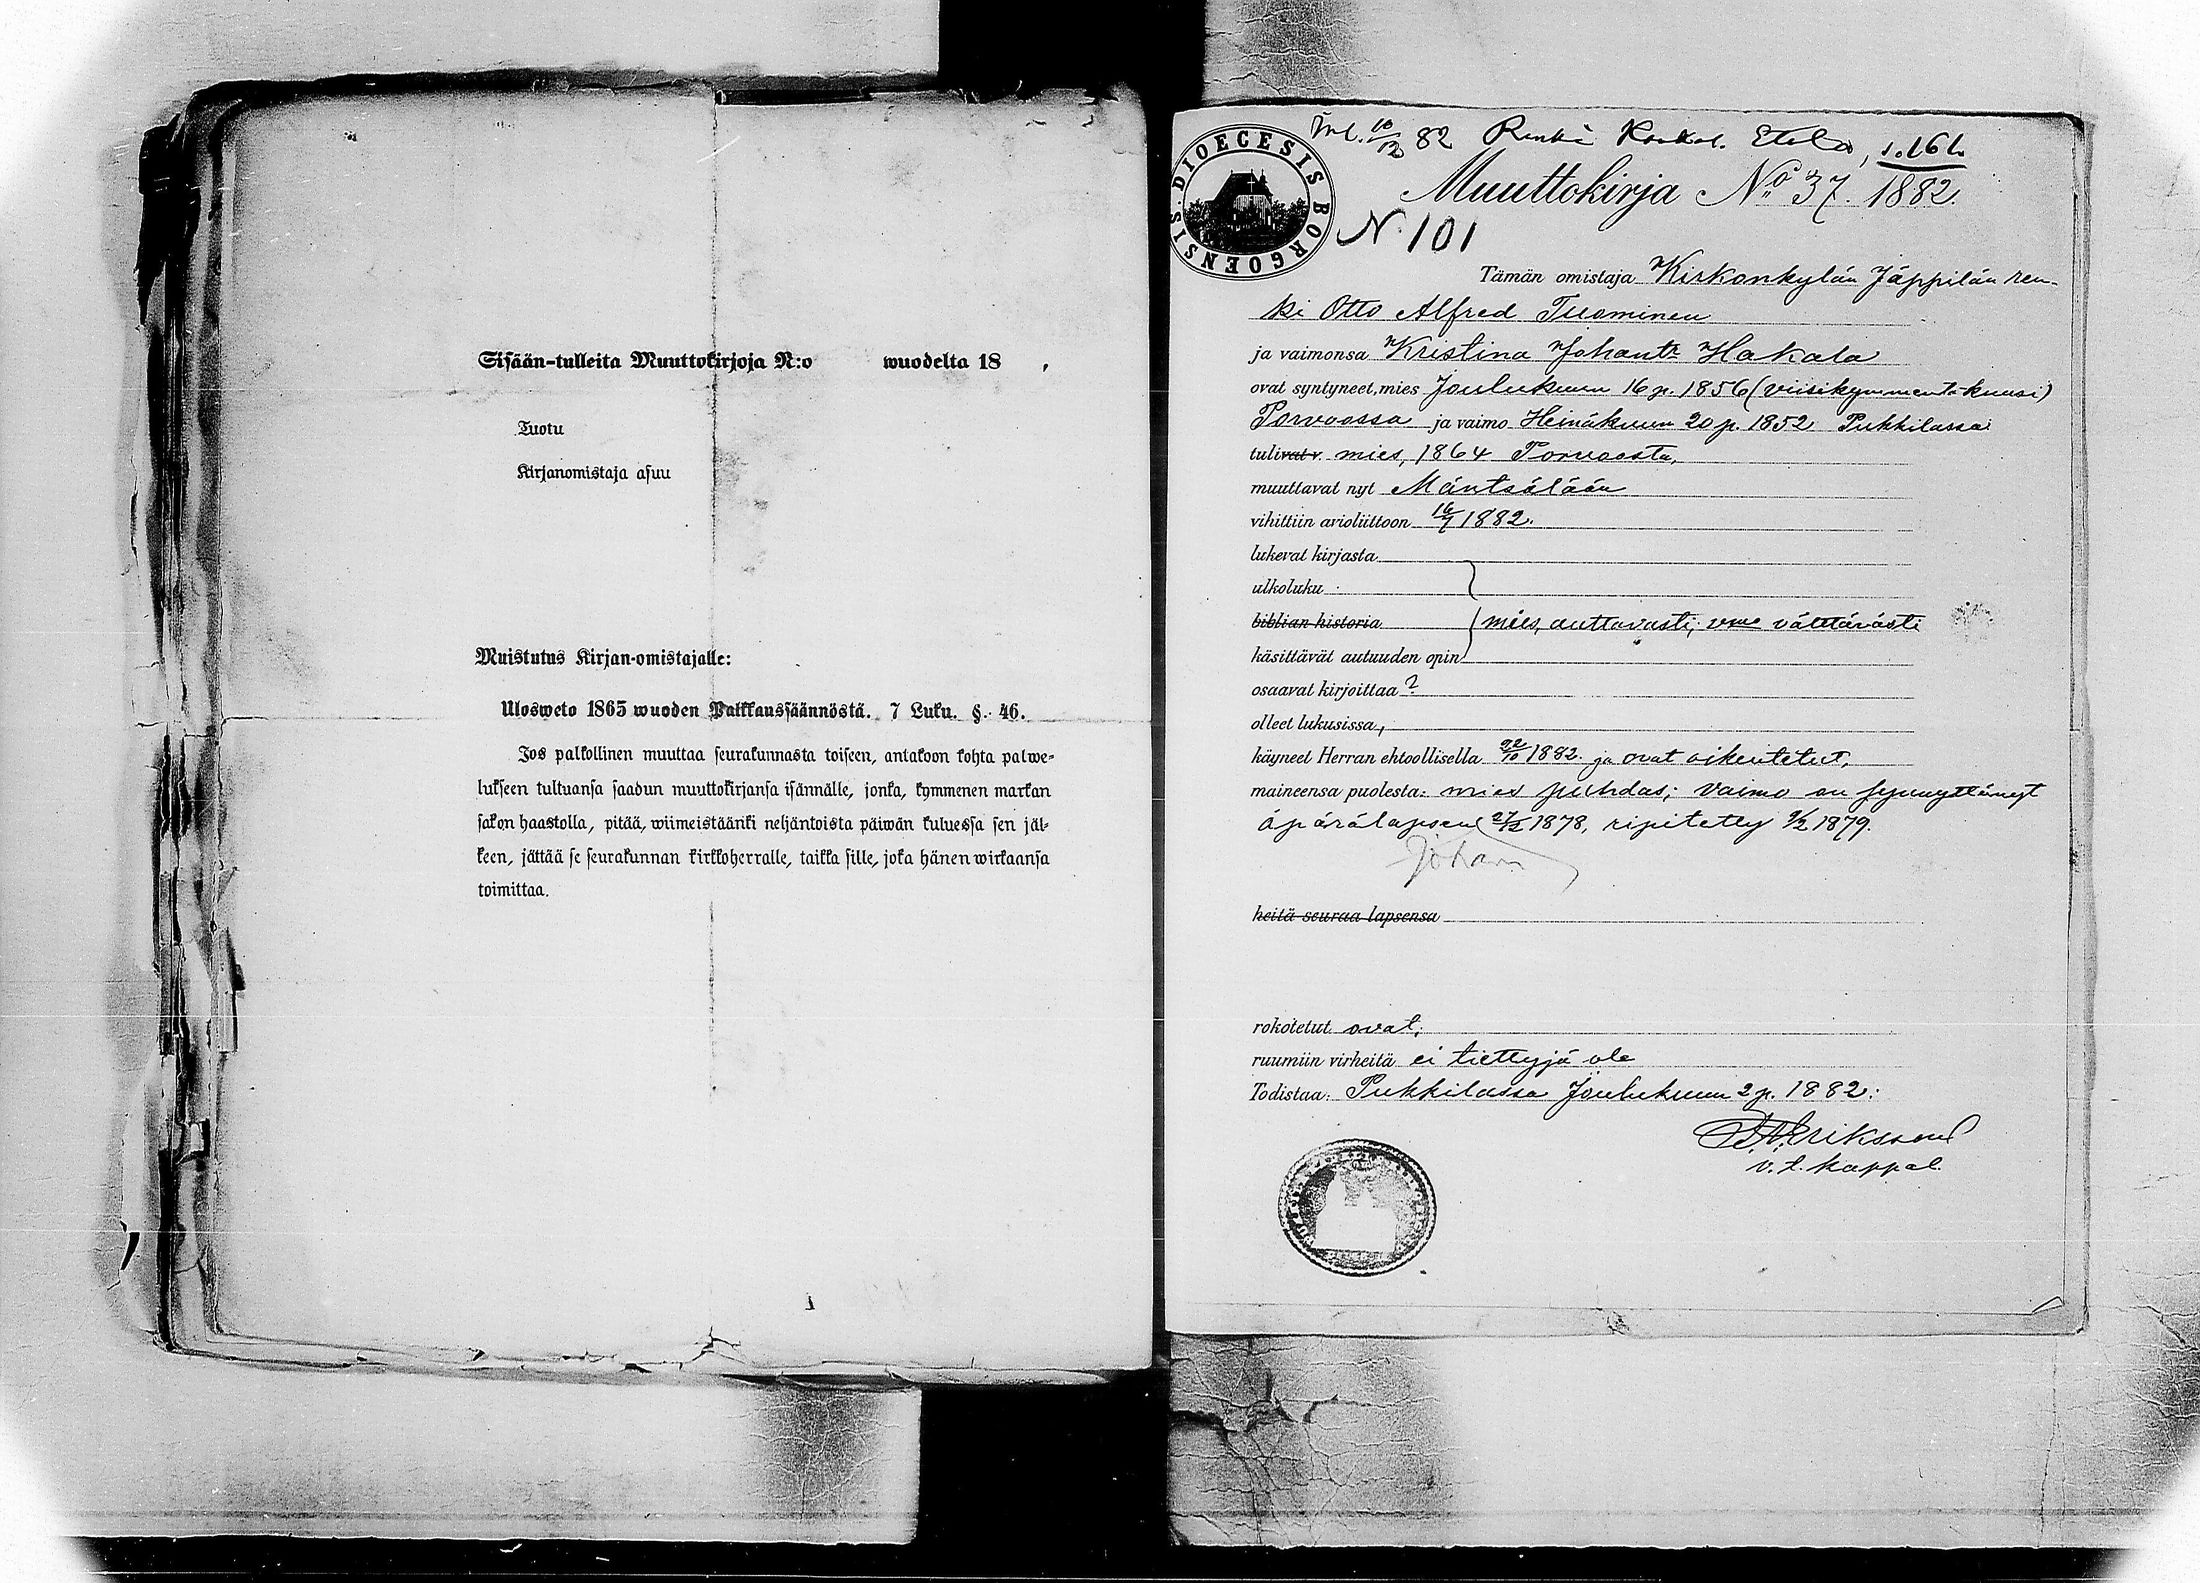 Sisään-tulleita Muuttokirjoja N:o wuodelta 18 ,
Tuotu
Kirjanomistaja asuu
Muistutus Kirjan-omistajalle:
Ulosweto 1865 wuoden Palkkaussäännöstä. 7 Luku. §. 46.
Jos palkollinen muuttaa seurakunnasta toiseen, antakoon kohta palwe-
lukseen tultuansa saadun muuttokirjansa isännälle, jonka, kymmenen markan
sakon haastolla, pitää, wiimeistäänki neljäntoista päiwän kuluessa sen jäl-
keen, jättää se seurakunnan kirkkoherralle, taikka sille, joka hänen wirkaansa
toimittaa.
10/12 82 Renki Etela, s. 161.
SIS. DIOECESIS BORGOENSIS
Muuttokirja No 37. 1882.
N. 101
Tämän omistaja Kirkonkylän Jäppilän ren-
ki Otto Alfred Tuominen
ja vaimonsa Kristina Johantr Hakala
ovat syntyneet, mies Joulukuun 16 p. 1856 (viisikymmentäkuusi)
Porvoossa ja vaimo Heinäkuun 20 p. 1852 Pukkilassa
tulivat v. mies, 1864 Porvoosta,
muuttavat nyt Mäntsälään
vihittiin avioliittoon 16/7 1882.
lukevat kirjasta
ulkoluku
biblian historia mies, auttavasti; vmo välttävästi
käsittävät autuuden opin
osaavat kirjoittaa ?
olleet lukusissa,
käyneet Herran ehtoollisella 22/10 1882. ja ovat oikeutetut,
maineensa puolesta: mies puhdas; vaimo on synnyttänyt
äpärälapsen 27/12 1878, ripitetty 9/2 1879.
Johan
heitä seuraa lapsensa
rokotetut ovat;
ruumiin virheitä ei tiettyjä ole
Todistaa: Pukkilassa Joulukuun 2 p. 1882:
Eriksson
v. t. kappal.